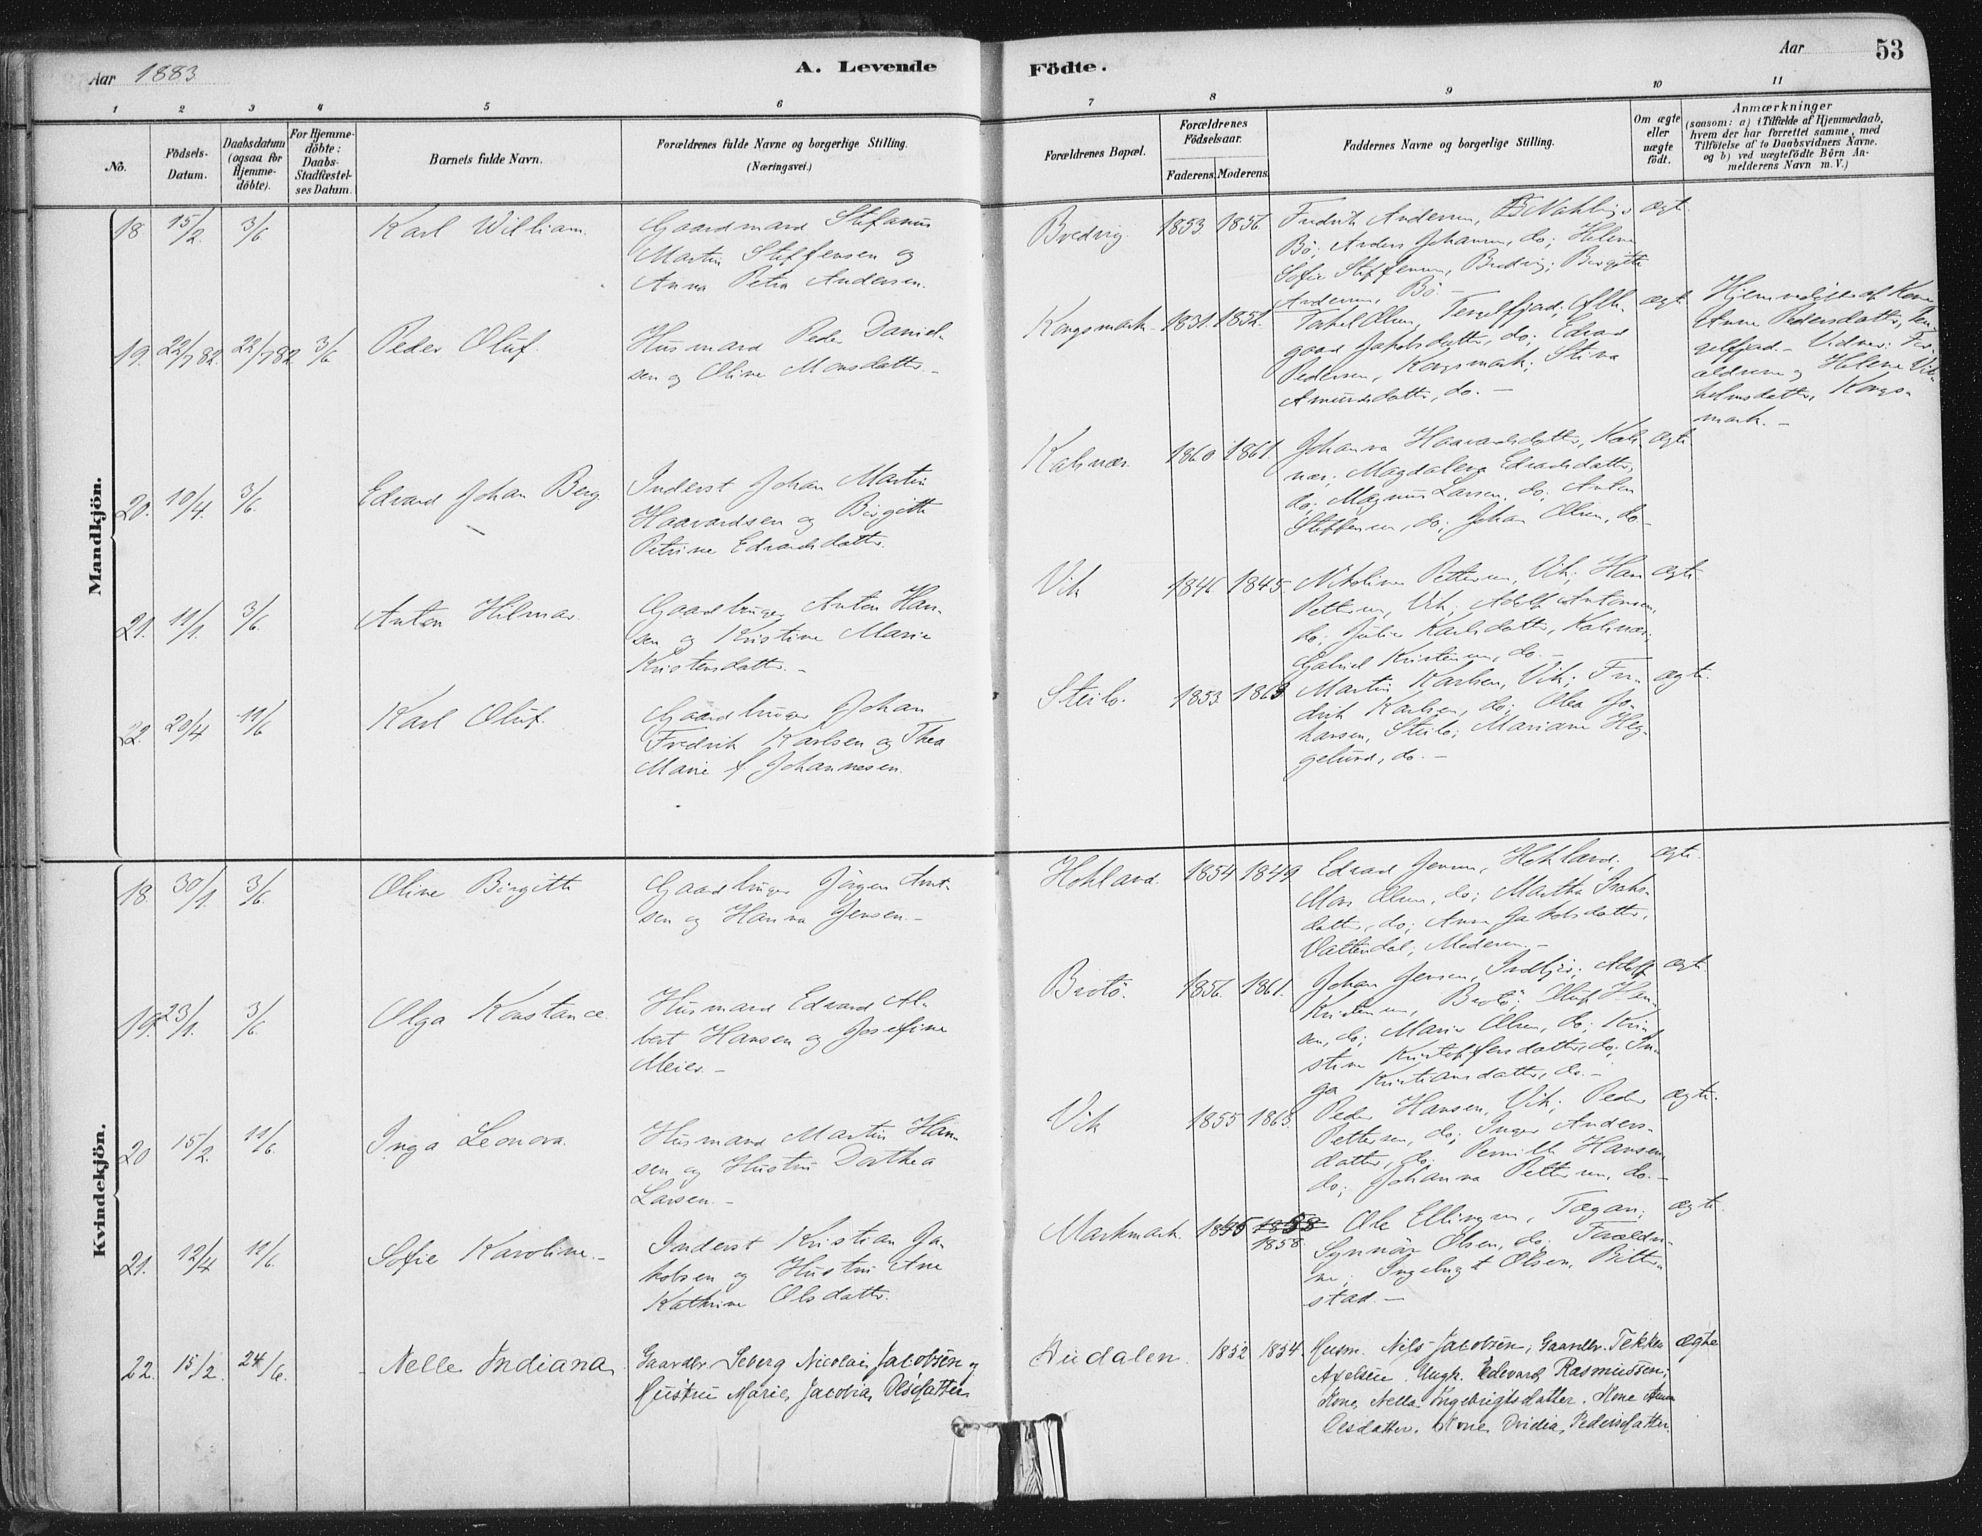 Aar 1883
A. Levende Födte.
Aar
53
1 2 3 4 5 6 7 8 9 10 11
No.
Födsels-
Datum.
Daabsdatum
(ogsaa for
Hjemme-
döbte).
For Hjemme-
döbte:
Daabs-
Stadfæstel-
ses Datum.
Barnets fulde Navn.
Forældrenes fulde Navne og borgerlige Stilling.
(Næringsvei.)
Forældrenes Bopæl.
Forældrenes
Födselsaar.
Faderens. Moderens.
Faddernes Navne og borgerlige Stilling.
Om ægte
eller
uægte
födt.
Anmærkninger
(saasom: a) i Tilfælde af Hjemmedaab,
hvem der har forrettet samme, med
Tilföielse af to Daabsvidners Navne.
og b) ved uægtefödte Börn An-
melderens Navn m. V.)
Mandkjön.
18. 15/2. 3/6. Karl William. Gaardmand Stefanus
Martin Steffensen og
Anna Petra Andersen.
Bredvig. 1853. 1856. Fredrik Andersen, ægt.
Bö; Anders Johansen, do; Helene
Sofie Steffensen, Bredvig; Birgitte
Andersen, Bö. -
19. 22/7 82. 22/7 82. 3/6. Peder Oluf. Husmand Peder Daniel-
sen og Oline Monsdatter. -
Kongsmark. 1831. 1851. Olsen, Tengelfjord; ægt.
Jakobsdatter, do; Edvard
Pedersen, Kongsmark; Stina
Amundsdatter, do. -
Hjemmedöbt af Kone
Anne Pedersdatter, Ten-
gelfjord. - Vidner: For-
ældrene og Helene Vil-
helmsdatter, Kongs-
mark. -
20. 10/4. 3/6. Edvard Johan Berg. Inderst Johan Martin
Haavardsen og Birgitte
Petrine Edvardsdatter.
Kalsnæs. 1860. 1861. Johanna Haavardsdatter, Kals- ægt.
næs; Magdalena Edvardsdatter,
do; Magnus Larsen, do; Anton
Steffensen, do; Johan Olsen, do. -
21. 11/1. 3/6. Anton Hilmar. Gaardbruger Anton Han-
sen og Kristine Marie
Kristensdatter. -
Vik 1846 1845. Nikoline Pettersen, Vik; Hans ægt.
Pettersen, Vik; Adolf Antonsen,
do; Julie Karlsdatter, Kalsnæs;
Gabriel Kristensen, do. -
22. 20/4 11/6 Karl Oluf. Gaardbruger Johan
Fredrik Karlsen og Thea
Marie f. Johannesen.
Steilo. 1853. 1863 Martin Karlsen, Vik; Fre- ægt.
drik Karlsen, do; Olea Jo-
hansen, Steilo; Mariane Heg-
gelund, do. -
Kvindekjön.
18. 30/1. 3/6. Oline Birgitte Gaardbruger Jörgen Arnt-
sen og Hanna Jensen. -
Hokland. 1854 1849 Edvard Jensen, Hokland; ægt.
Mons Olsen, do; Martha Isaks-
datter, do; Anne Jakobsdatter,
Vatterdal; Moderen. -
19. 23/1. 3/6. Olga Konstance. Husmand Edvard Al-
bert Hansen og Josefine
Meier. -
Brotö. 1856. 1861. Johan Jensen, Indbjör; Adolf ægt.
Kristensen, Brotö; Oluf Han-
sen, do; Marie Olsen, do; Kri-
stine Kristoffersdatter, do; In-
ga Kristiansdatter, do. -
20 15/2. 11/6. Inga Leonora. Husmand Martin Han-
sen og Hustru Dorthea
Larsen. -
Vik 1855 1863. Peder Hansen, Vik; Peder ægt.
Pettersen, do; Inger Anders-
datter, do; Pernille Hansen,
do; Johanna Pettersen, do. -
21. 12/4 11/6. Sofie Karoline. - Inderst Kristian Ja-
kobsen og Hustru Ane
Kathrine Olsdatter.
Markmark. 1845 1858 Ole Ellingsen, Tagan; ægt.
1858. Synnöve Olsen, do; Forældre-
ne; Ingeborg Olsen, Bitter-
stad. -
22. 15/2. 24/6. Nelle Indiana Gaardbr Seberg Nicolai Jacobsen og
Hustru Marie Jacobia Olsdatter
Budalen. 1852 1854. Husm. Nils Jacobsen, Gaardbr. Tekken ægte
Axelsen. Ungk. Edevard Rasmussen.
Kone Nella Ingebrigtsdatter. Kone Anna
Olsdatter. Kone Ovidia Pedersdatter.